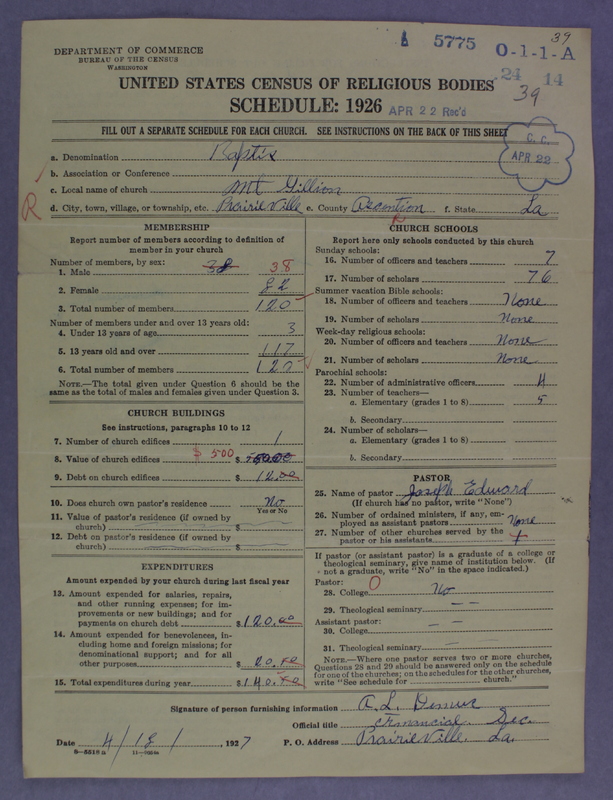 39
5775 0-1-1-A
DEPARTMENT OF COMMERCE
BUREAU OF THE CENSUS
WASHINGTON
.24 14
39
UNITED STATES CENSUS OF RELIGIOUS BODIES
SCHEDULE: 1926 APR 22 Rec'd
FILL OUT A SEPARATE SCHEDULE FOR EACH CHURCH. SEE INSTRUCTIONS ON THE BACK OF THIS SHEET
C. C.
APR 22
a. Denomination Baptis
b. Association or Conference
c. Local name of church Mt Gillion
R d. City, town, village, or township, etc. PrairieVille e. County Ascontion f. State La
R
MEMBERSHIP
Report number of members according to definition of
member in your church
Number of members, by sex:
1. Male 38 38
2. Female 82
3. Total number of members 120
Number of members under and over 13 years old:
4. Under 13 years of age 3
5. 13 years old and over 117
6. Total number of members 120
NOTE.—The total given under Question 6 should be
same as the total of males and females given under Question 3.
CHURCH BUILDINGS
See instructions, paragraphs 10 to 12
7. Number of church edifices 1
8. Value of church edifices $500 $
9. Debt on church edifices $ 12.00
10. Does church own pastor's residence No
Yes or No
11. Value of pastor's residence (if owned by
church) $
12. Debt on pastor's residence (if owned by
church) $
EXPENDITURES
Amount expended by your church during last fiscal year
13. Amount expended for salaries, repairs,
and other running expenses; for im-
provements or new buildings; and for
payments on church debt $120.00
14. Amount expended for benevolences, in-
cluding home and foreign missions; for
denominational support; and for all
other purposes $20.00
15. Total expenditures during year $140.00
CHURCH SCHOOLS
Report here only schools conducted by this church
Sunday schools:
16. Number of officers and teachers 7
17. Number of scholars 76
Summer vacation Bible schools:
18. Number of officers and teachers None
19. Number of scholars None
Week-day religious schools:
20. Number of officers and teachers None
21. Number of scholars None
Parochial schools:
22. Number of administrative officers 4
23. Number of teachers—
a. Elementary (grades 1 to 8) 5
b. Secondary
24. Number of scholars—
a. Elementary (grades 1 to 8)
b. Secondary
PASTOR
25. Name of pastor Joseph Edward
(If church has no pastor, write "None")
26. Number of ordained ministers, if any, em-
ployed as assistant pastors None
27. Number of other churches served by the
pastor or his assistants
If pastor (or assistant pastor) is a graduate of a college or
theological seminary, give name of institution below. (If
not a graduate, write "No" in the space indicated.)
Pastor: O
28. College No
29. Theological seminary — —
Assistant pastor:
30. College — —
31. Theological seminary — —
NOTE.—Where one pastor serves two or more churches,
Questions 28 and 29 should be answered only on the schedule
for one of the churches; on the schedules for the other churches,
write "See schedule for church."
Signature of person furnishing information A. L.
Official title Financial Sec.
Date 4/18/, 1927 P. O. Address PrairieVille, La.
8-5518a